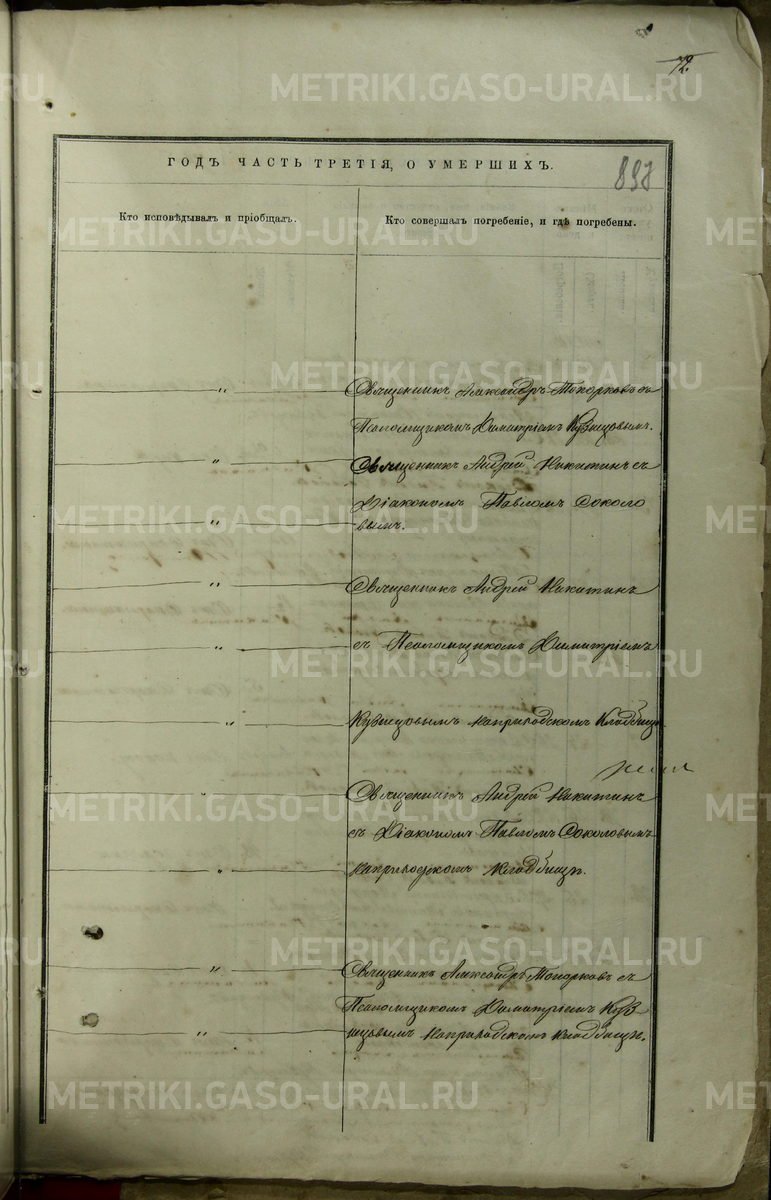 72.
ГОДЪ ЧАСТЬ ТРЕТІЯ, О УМЕРШИХЪ.
898
Кто исповѣдывалъ и пріобщалъ.
Кто совершалъ погребеніе, и гдѣ погребены.
„ Священникъ Александръ Топорковъ съ
Псаломщикомъ Димитріемъ Кузнецовымъ.
„ Священникъ Андрей Никитинъ съ
Діакономъ Павломъ Соколо
„ вымъ.
„ Священникъ Андрей Никитинъ
„ съ Псаломщикомъ Димитріемъ
„ Кузнецовымъ наприходскомъ Кладбищѣ
„ Священникъ Андрей Никитинъ
съ Діакономъ Павломъ Соколовымъ
„ наприходскомъ Кладбищѣ.
„ Священникъ Александръ Топорковъ съ
Псаломщикомъ Димитріемъ Куз-
„ нецовымъ наприходскомъ Кладбищѣ.
METRIKI.GASO-URAL.RU